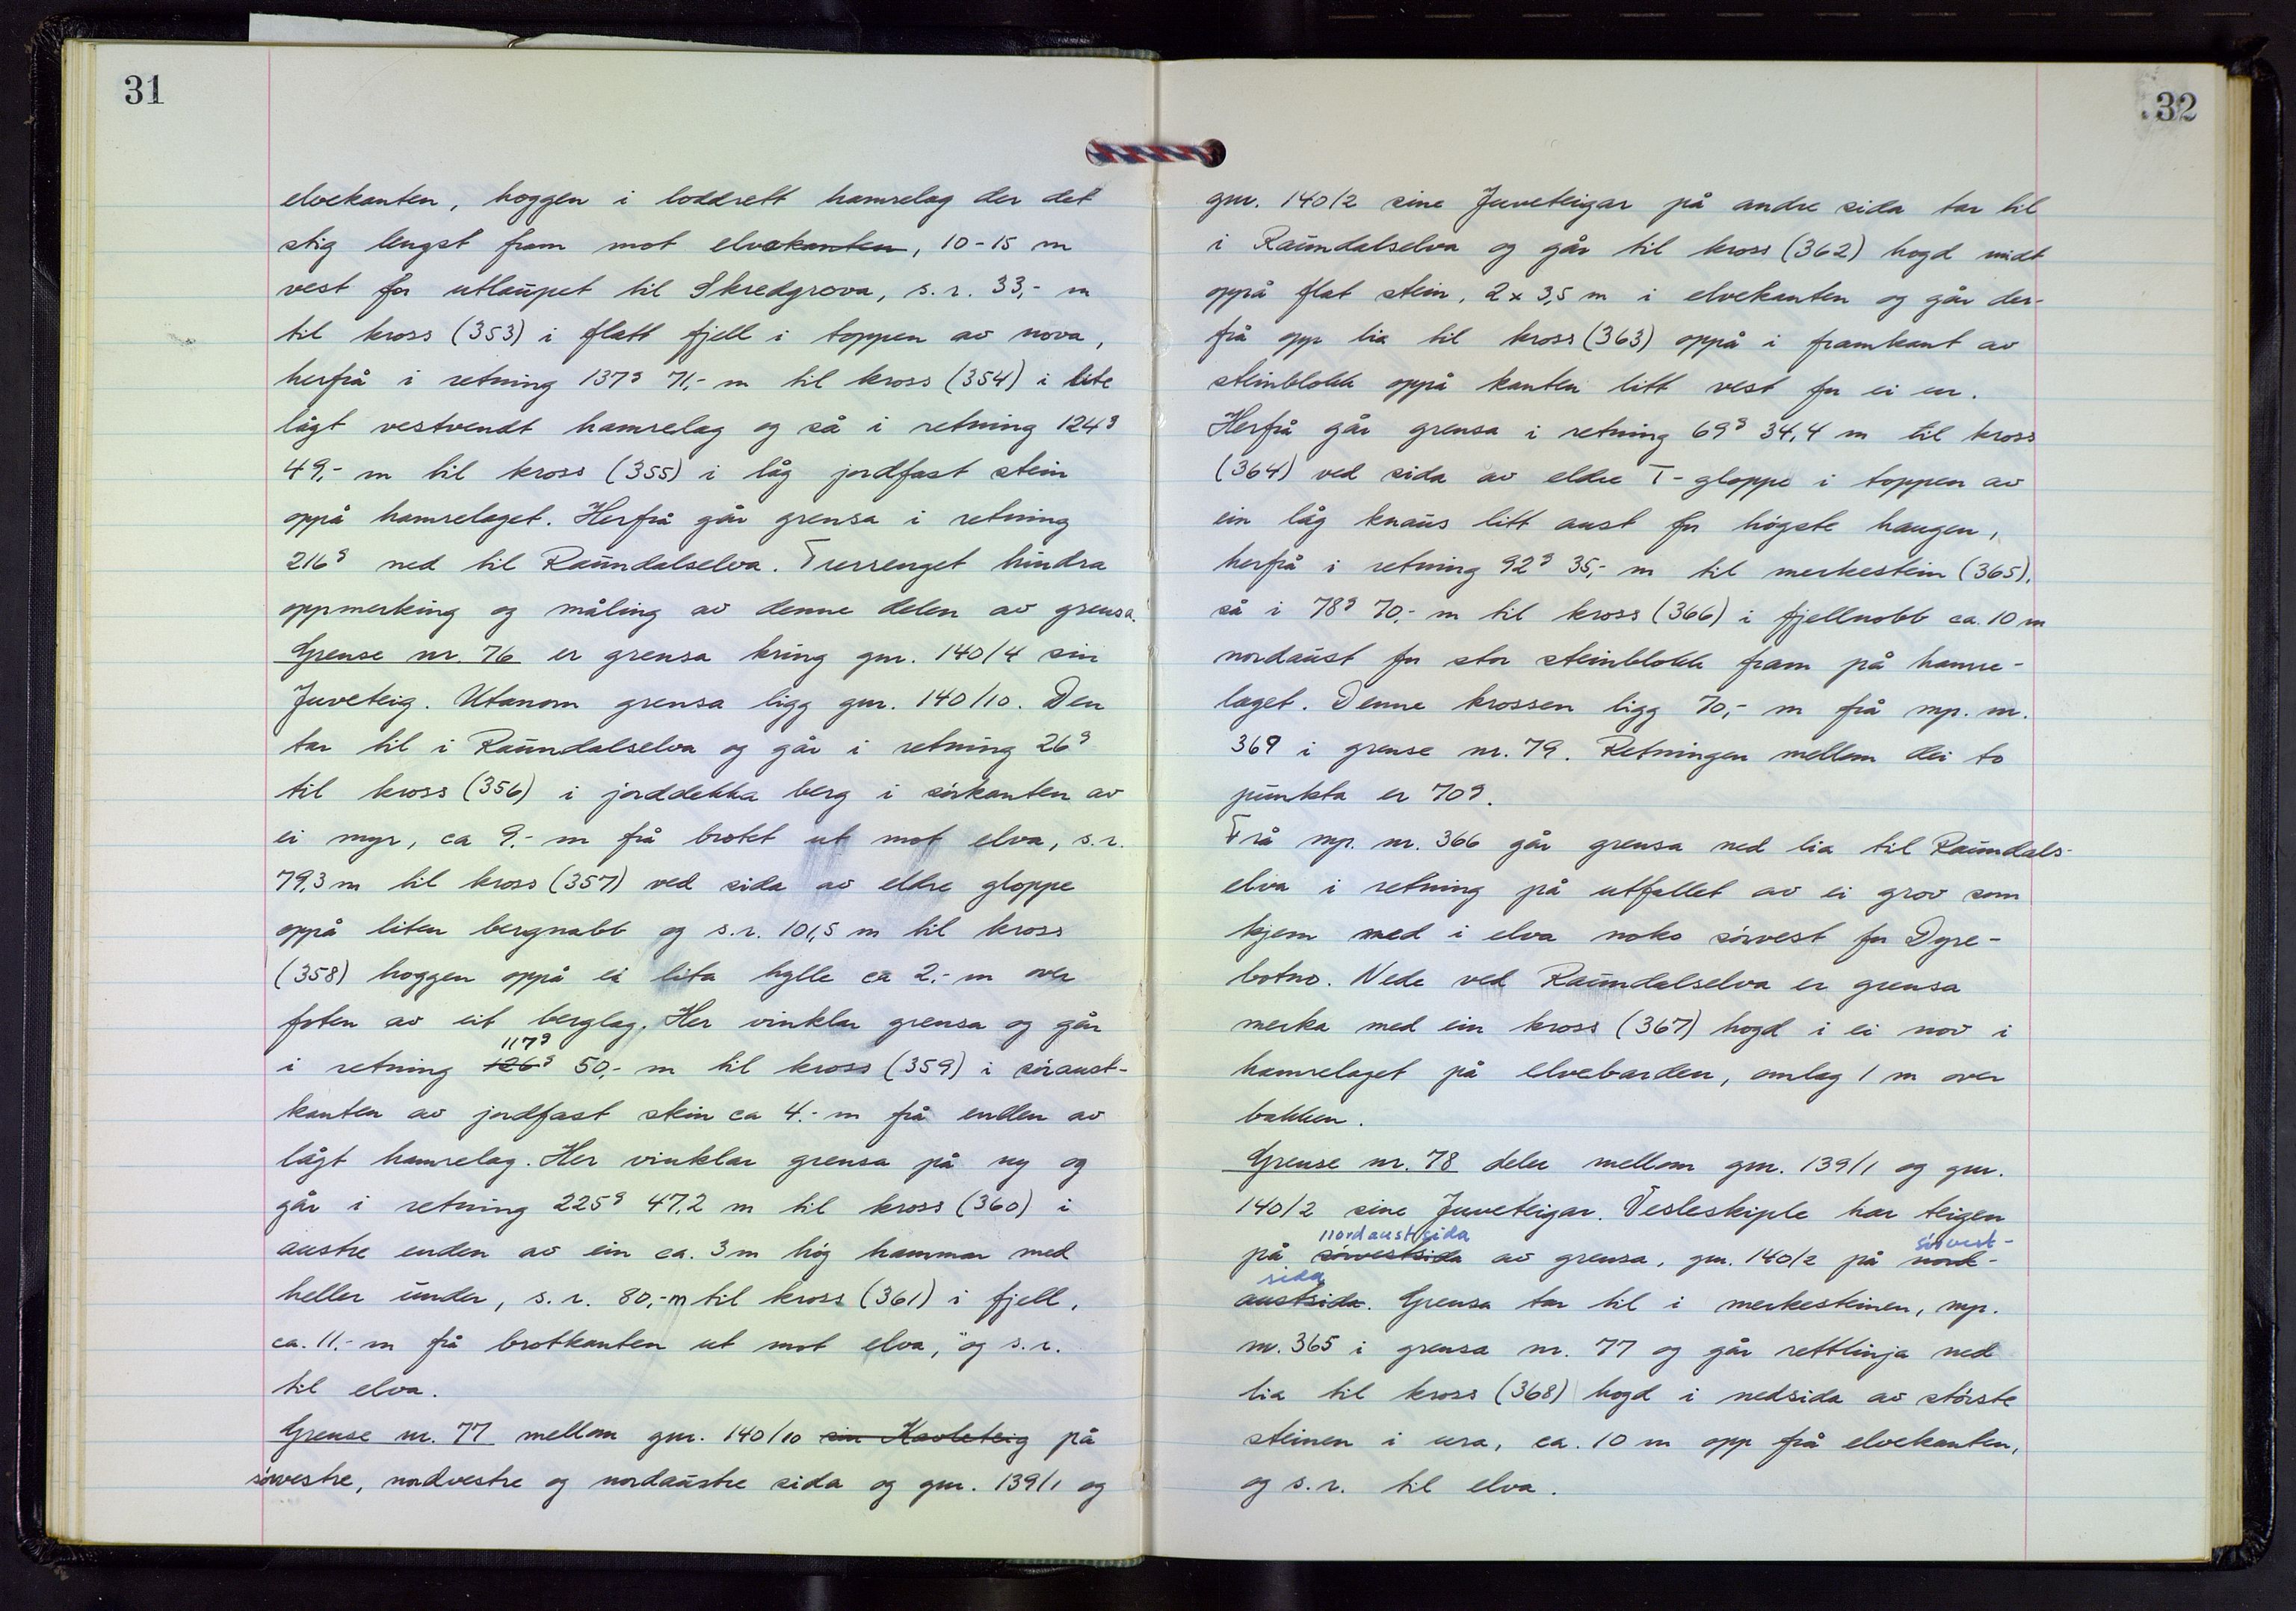 31
elvekanten, hoggen i loddrett hamrelag der det
stig lengst fram mot elvekanten, 10-15 m
vest for utlaupet til Skredgrova, s.r. 33,- m
til kross (353) i flatt fjell i toppen av nova,
herfrå i retning 137g 71,- m til kross (354) i lite
lågt vestvendt hamrelag og så i retning 124g
49,- m til kross (355) i låg jordfast stein
oppå hamrelaget. Herfrå går grensa i retning
216g ned til Raundalselva. Terrenget hindra
oppmerking og måling av denne delen av grensa.
Grense nr. 76 er grensa kring gnr. 140/4 sin
Juveteig. Utanom grensa ligg gnr. 140/10. Den
tar til i Raundalselva og går i retning 26g
til kross (356) i jorddekka berg i sørkanten av
ei myr, ca 9,- m frå brotet ut mot elva, s.r.
79,3 m til kross (357) ved sida av eldre gloppe
oppå liten bergnabb og s.r. 101,5 m til kross
(358) hoggen oppå ei lita hylle ca 2,- m over
foten av eit berglag. Her vinklar grensa og går
117g
i retning 126g 50,- m til kross (359) i søraust-
kanten av jordfast stein ca 4,- m frå enden av
lågt hamrelag. Her vinklar grensa på ny og
går i retning 225g 47,2 m til kross (360) i
austre enden av ein ca. 3 m høg hammar med
heller under, s.r. 80,- m til kross (361) i fjell,
ca. 11,- m frå brotkanten ut mot elva, og s.r.
til elva.
Grense nr. 77 mellom gnr. 140/10 sin Kavleteig på
sørvestre, nordvestre og nordaustre sida og gnr. 139/1 og
32
gnr. 140/2 sine Juveteigar på andre sida tar til
i Raundalselva og går til kross (362) hogd midt
oppå flat stein, 2 x 3,5 m i elvekanten og går der-
frå opp lia til kross (363) oppå i framkant av
steinblokk oppå kanten litt vest for ei ur.
Herfrå går grensa i retning 69g 34,4 m til kross
(364) ved sida av eldre T-gloppe i toppen av
ein låg knaus litt aust for høgste haugen,
herfrå i retning 92g 35,- m til merkestein (365),
så i 78g 70,- m til kross (366) i fjellnobb ca. 10 m
nordaust for stor steinblokk fram på hamre-
laget. Denne krossen ligg 70,- m frå mp. nr.
369 i grense nr. 79. Retningen mellom dei to
punkta er 70g.
Frå mp. nr. 366 går grensa ned lia til Raundals-
elva i retning på utfallet av ei grov som
kjem med i elva noko sørvest for Dyre-
botno. Nede ved Raundalselva er grensa
merka med ein kross (367) hogd i ei nov i
hamrelaget på elvebarden, omlag 1 m over
bakken.
Grense nr. 78 deler mellom gnr. 139/1 og gnr.
140/2 sine Juveteigar. Vesleskiple har teigen
nordaustsida sørvest-
på sørvestsida av grensa, gnr. 140/2 på nord-
sida
austsida. Grensa tar til i merkesteinen, mp.
nr. 365 i grensa nr. 77 og går rettlinja ned
lia til kross (368) hogd i nedsida av største
steinen i ura, ca. 10 m opp frå elvekanten,
og s.r. til elva.